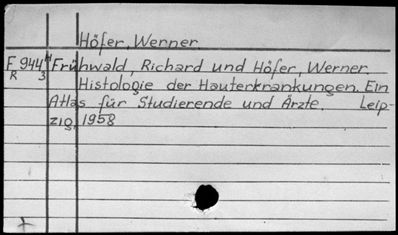 Höfer, Werner
F 944 H Frühwald, Richard und Höfer, Werner
R 3 Histologie der Hauterkrankungen. Ein
Atlas für Studierende und Ärzte. Leip-
zig, 1958